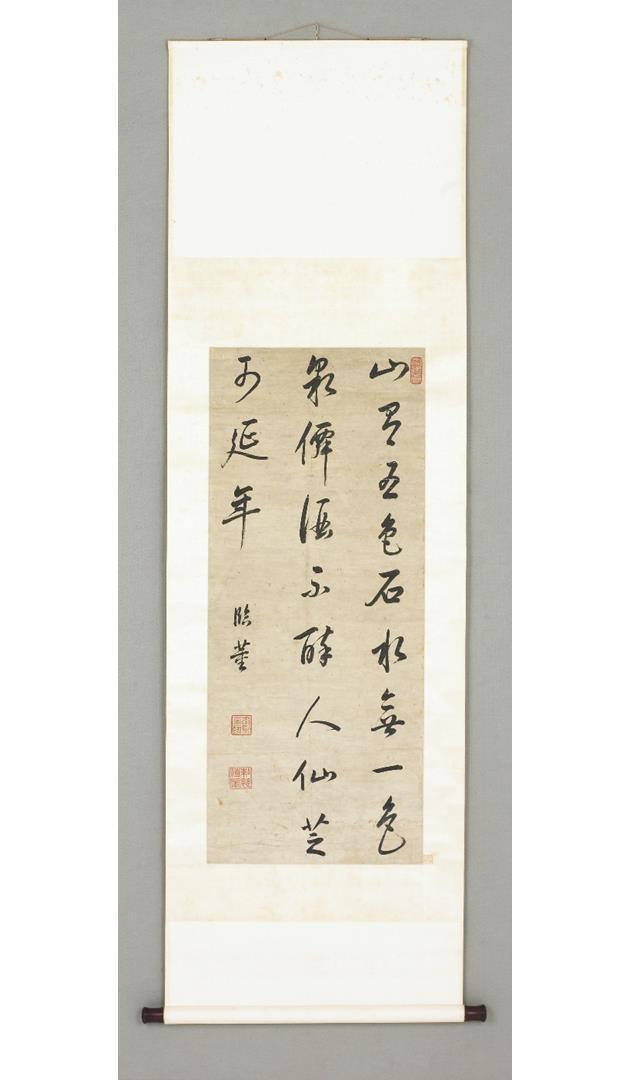 山盡五色石水無一色
泉僊酒不醉人仙芝
可延年
臨董